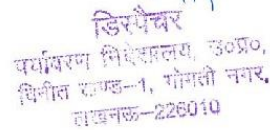 डिस्पैचर
पर्यावरण निदेशालय, उ०प्र०,
विनीत खण्ड-1, गोमती नगर,
लखनऊ-226010